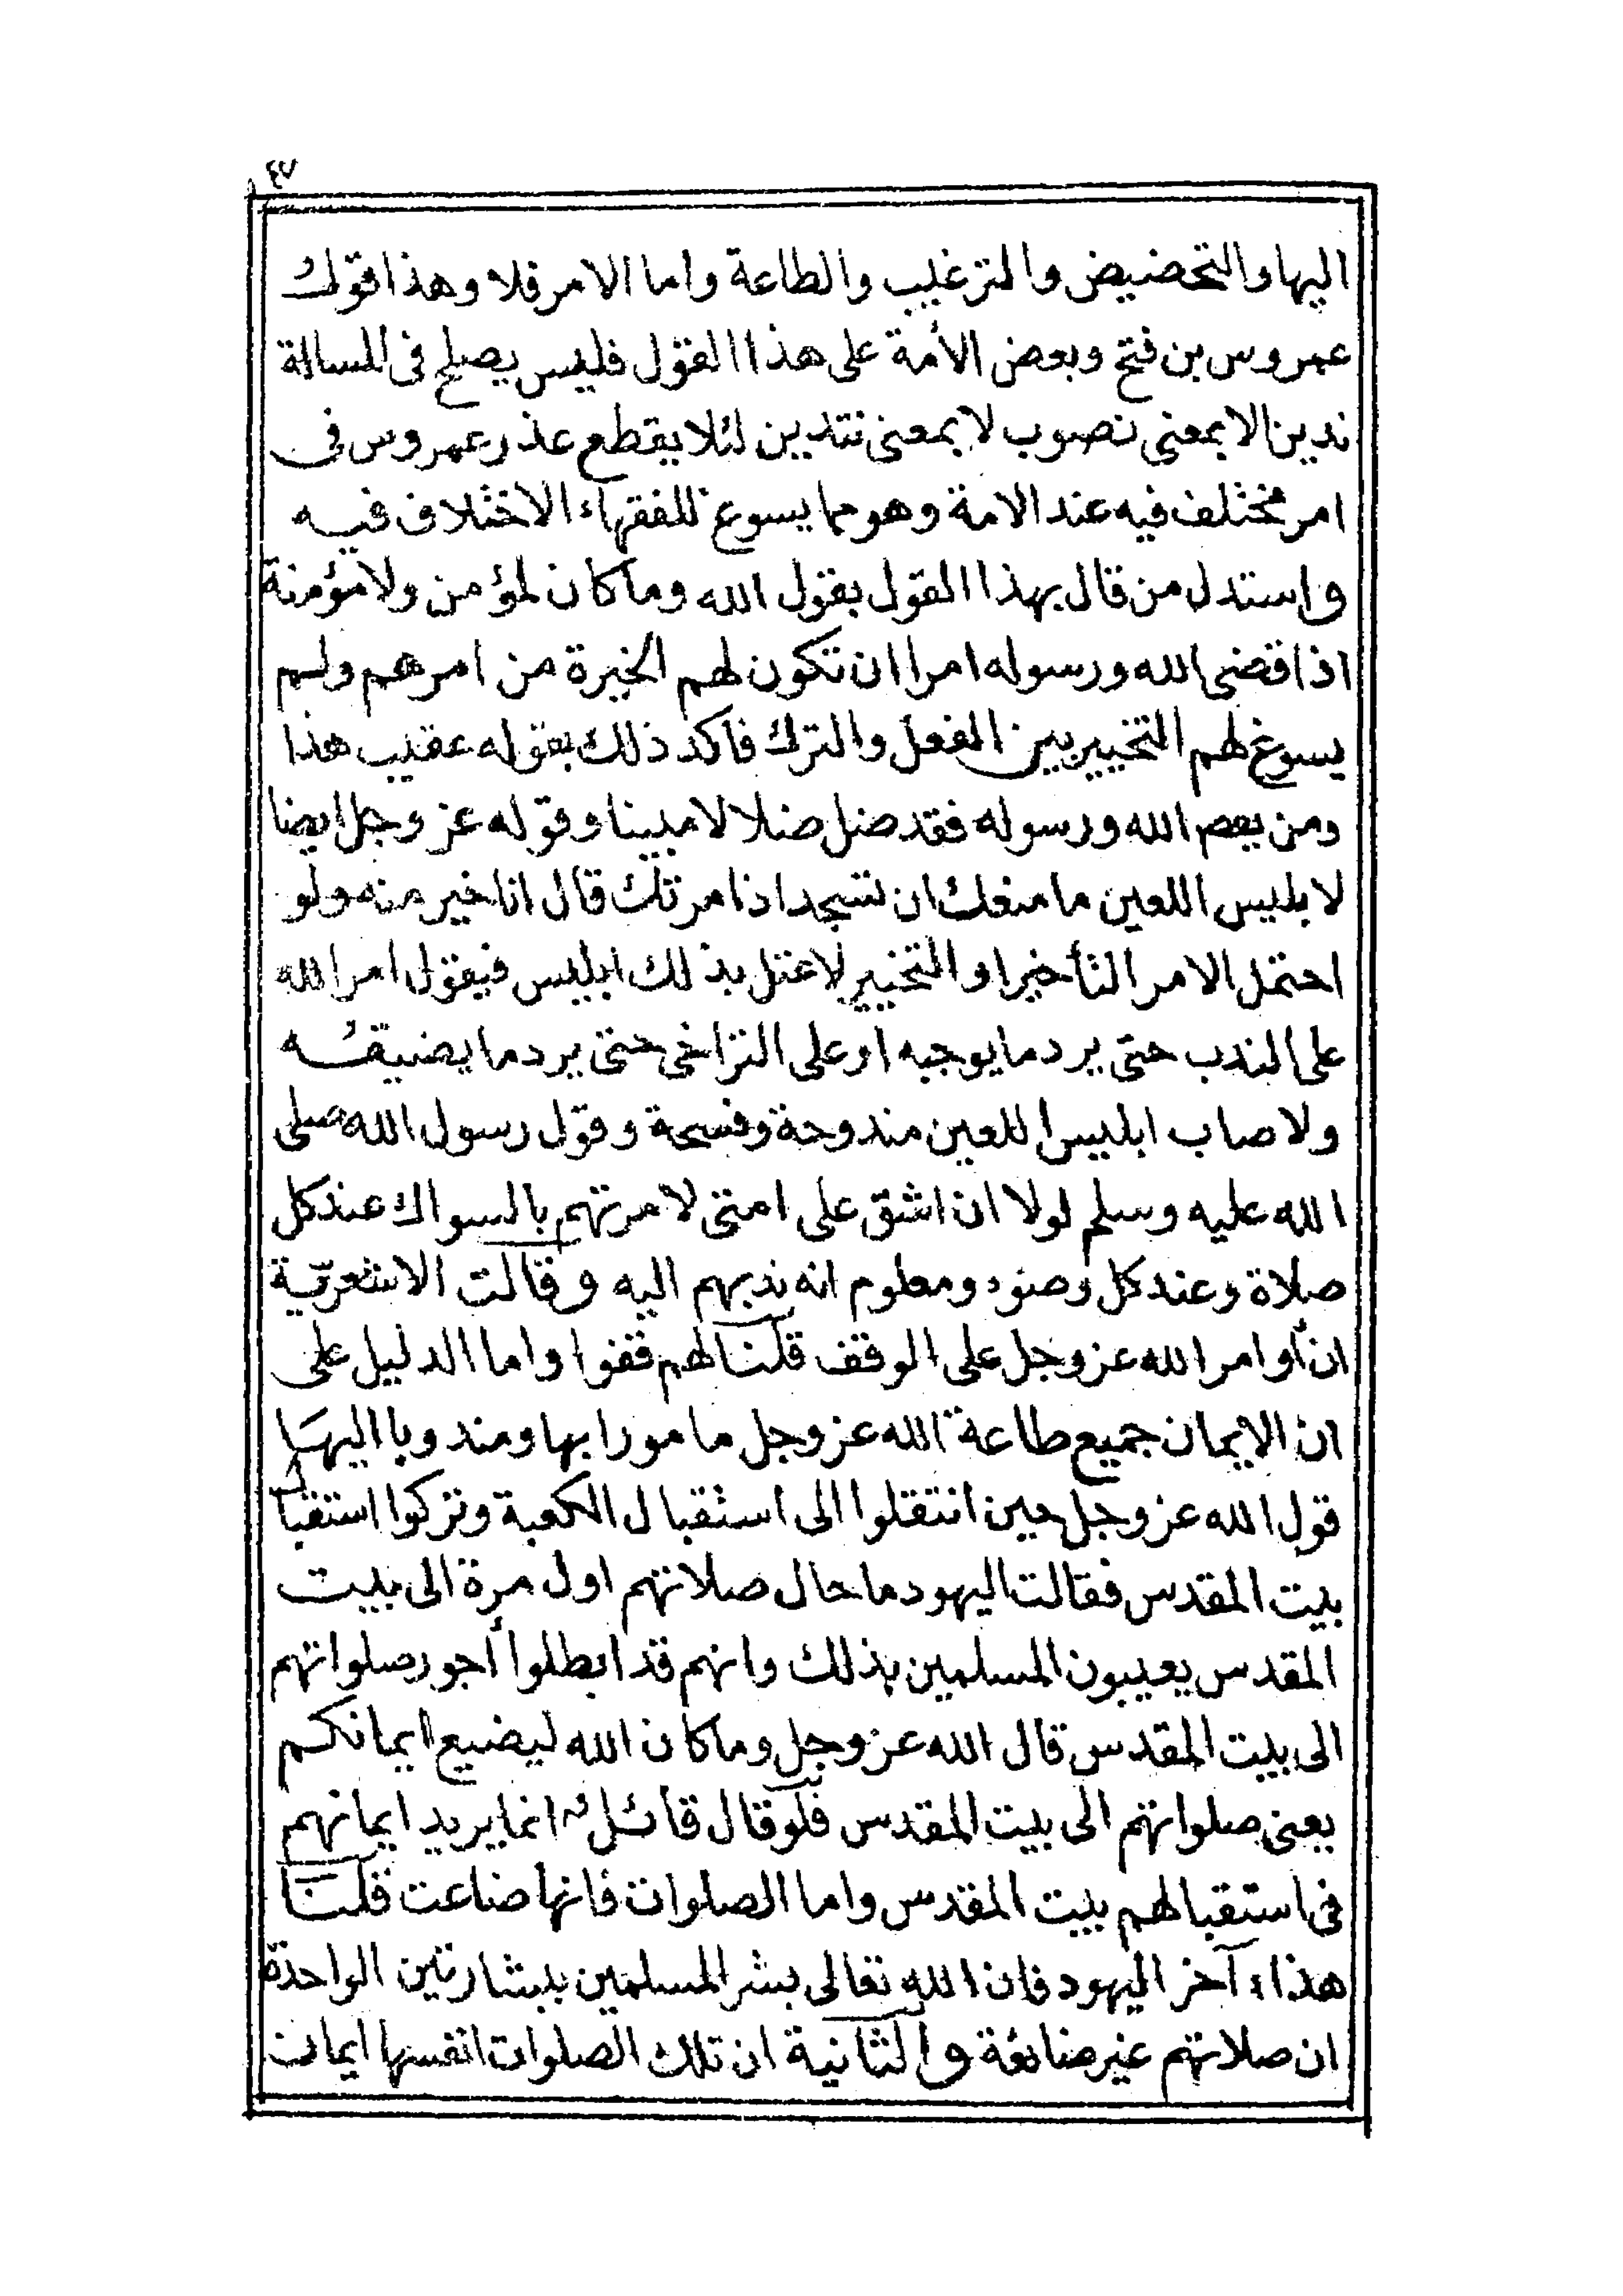 ٤٧
اليها والتحضيض والترغيب والطاعة واما الامر فلا وهذا قول
عمروس بن فتح وبعض الأمة على هذا القول فليس يصلح فى المسالة
ندين الا بمعنى نصوب لا بمعنى نتدين لئلا يقطع عذر عمروس فى
امر مختلف فيه عند الامة وهو مما يسوغ للفقهاء الاختلاف فيه
واستدل من قال بهذا القول بقول الله وما كان لمؤمن ولا مؤمنة
اذا قضى الله ورسوله امرا ان تكون لهم الخيرة من امرهم ولم
يسوغ لهم التخيير بين الفعل والترك فاكد ذلك بقوله عقيب هذا
ومن يعص الله ورسوله فقد ضل ضلالا مبينا وقوله عز وجل ايضا
لابليس اللعين ما منعك ان تسجد اذ امرتك قال انا خير منه ولو
احتمل الامر التأخير او التخيير لاعتل بذلك ابليس فيقول امر الله
على الندب حتى يرد ما يوجبه او على التراخى حتى يرد ما يضيقه
ولاصاب ابليس اللعين مندوحة وفسحة وقول رسول الله صلى
الله عليه وسلم لولا ان اشق على امتى لامرتهم بالسواك عند كل
صلاة وعند كل وضوء ومعلوم انه ندبهم اليه وقالت الاشعرية
ان أوامر الله عز وجل على الوقف قلنا لهم قفوا واما الدليل على
ان الايمان جميع طاعة الله عز وجل مامورا بها ومندوبا اليها
قول الله عز وجل حين انتقلوا الى استقبال الكعبة وتركوا استقبا
بيت المقدس فقالت اليهود ما حال صلاتهم اول مرة الى بيت
المقدس يعيبون المسلمين بذلك وانهم قد ابطلوا أجور صلواتهم
الى بيت المقدس قال الله عز وجل وما كان الله ليضيع ايمانكم
يعنى صلواتهم الى بيت المقدس فلو قال قائل انما يريد ايمانهم
فى استقبالهم بيت المقدس واما الصلوات فانها ضاعت قلنا
هذا آخر اليهود فان الله تعالى بشر المسلمين ببشارتين الواحدة
ان صلاتهم غير ضائعة والثانية ان تلك الصلوات انفسها ايمان